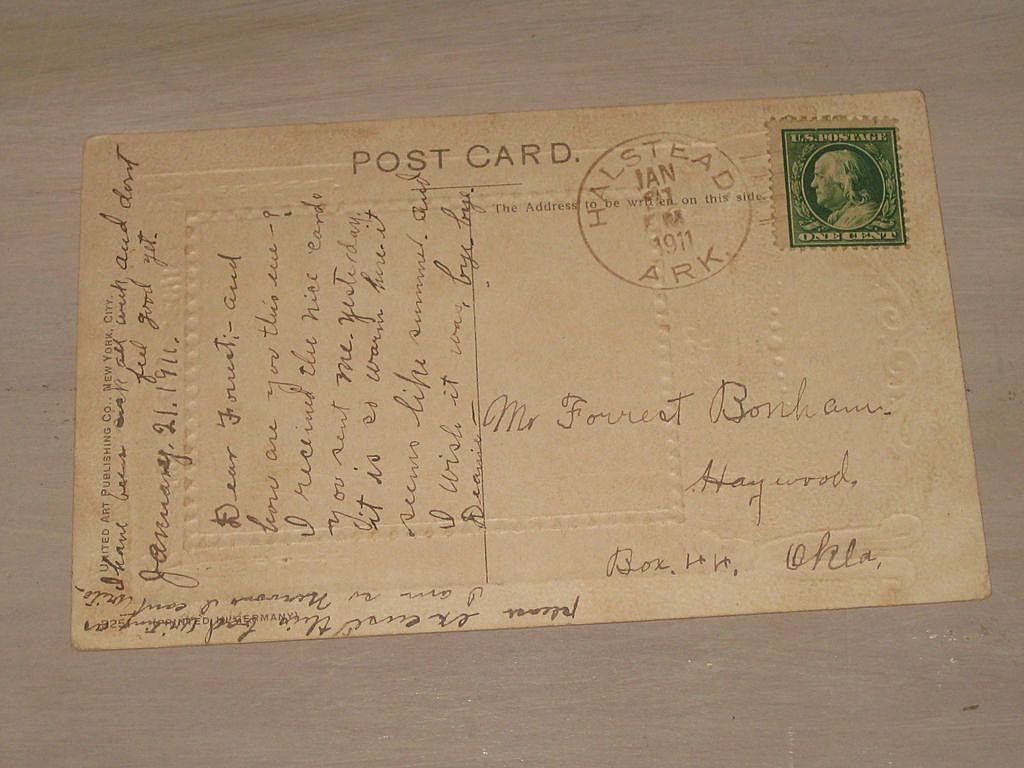 POST CARD.
The Address to be written on this side.
HALSTEAD
JAN
21
M
1911
ARK.
U.S. POSTAGE
ONE CENT
UNITED ART PUBLISHING CO., NEW YORK, CITY.
(PRINTED IN GERMANY)
I have been sick all week and dont
feel good yet.
January, 21, 1911.
Dear Forrest:- and
how are you this eve-?
I received the nice card
you sent me yesterday,
it is so warm here it
seems like summer. and
I wish it was, bye bye
Dearie-
please excuse this bad writing as
I am so nervous I cant write,
Mr Forrest Bonham.
Haywood,
Box. 44. Okla.